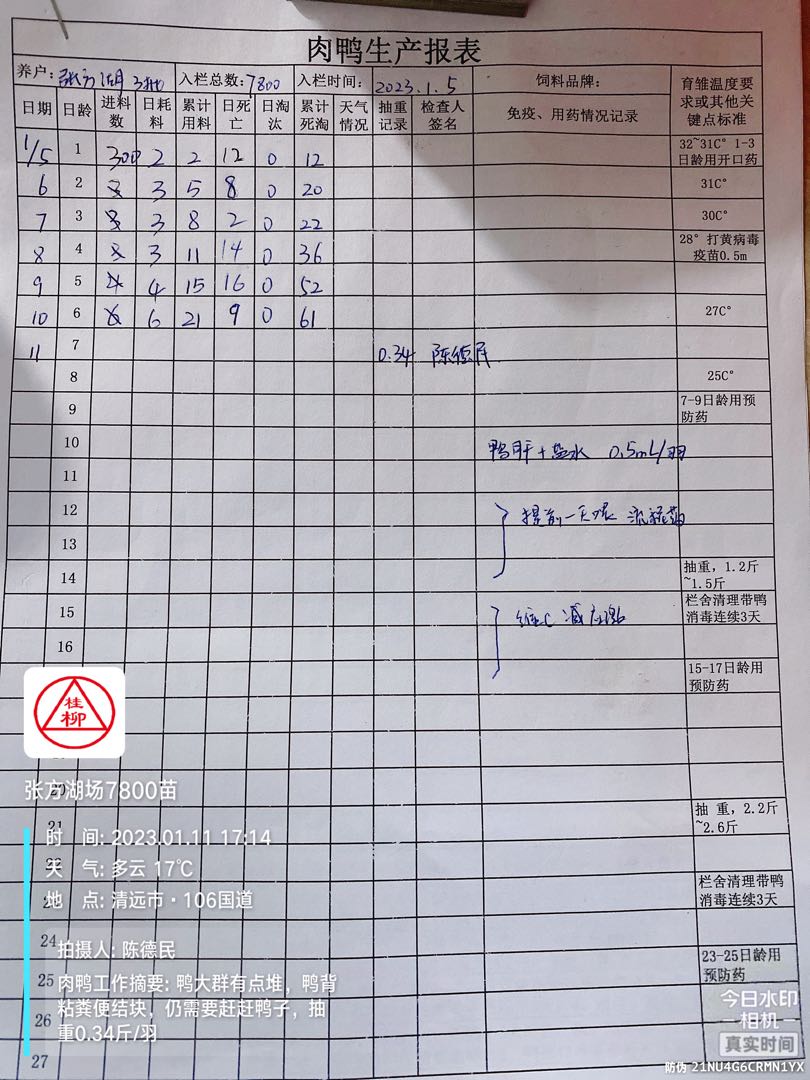 肉鸭生产报表
养户: 张方湖 入栏总数:7800 入栏时间: 2023.1.5 饲料品牌: 育雏温度要求或其他关键点标准
日期 日龄 进料数 日耗料 累计用料 日死亡 日淘汰 累计死淘 天气情况 抽重记录 检查人签名 免疫、用药情况记录
1/5 1 300 2 2 12 0 12 32~31C° 1-3日龄用开口药
6 2 3 5 8 0 20 31C°
7 3 3 8 2 0 22 30C°
8 4 3 11 14 0 36 28° 打黄病毒疫苗0.5m
9 5 4 15 16 0 52
10 6 6 21 9 0 61 27C°
11 7 0.34 陈德民
8 25C°
9 7-9日龄用预防药
10 鸭肝+盐水 0.5mL/羽
11
12 提前一天
13
14 抽重, 1.2斤~1.5斤
15 维C 减应激 栏舍清理带鸭消毒连续3天
16
15-17日龄用预防药
桂柳
张方湖场7800苗
20
21 抽 重, 2.2斤~2.6斤
时 间: 2023.01.11 17:14
天 气: 多云 17℃
地 点: 清远市·106国道
栏舍清理带鸭消毒连续3天
24 23-25日龄用预防药
拍摄人: 陈德民
25
肉鸭工作摘要: 鸭大群有点堆，鸭背
粘粪便结块，仍需要赶赶鸭子，抽
重0.34斤/羽
26
27
今日水印
相机
真实时间
防伪 21NU4G6CRMN1YX